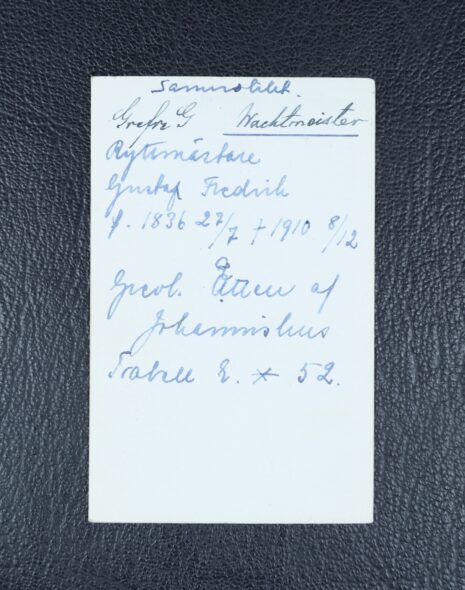 Grefve G Wachtmeister
Ryttmästare
Gustaf Fredrik
f. 1836 27/7 † 1910 8/12
Grevl. Ätten af
Johannishus
Tabell E. * 52.